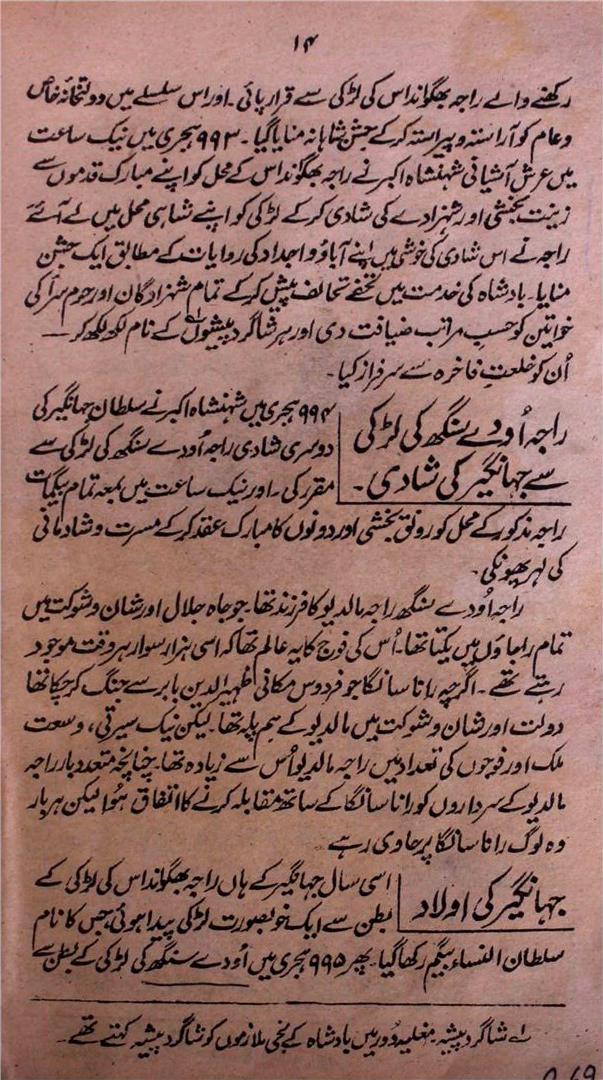 ۱۴
رکھنے والے راجہ بھگوانداس کی لڑکی سے قرار پائی۔ اور اس سلسلے میں دولتخانۂ خاص
و عام کو آراستہ و پیراستہ کر کے جشن شاہانہ منایا گیا۔ ۹۹۳ ہجری میں نیک ساعت
میں عرش آشیانی شہنشاہ اکبر نے راجہ بھگوانداس کے محل کو اپنے مبارک قدموں سے
زینت بخشی اور شہزادے کی شادی کر کے لڑکی کو اپنے شاہی محل میں لے آئے
راجہ نے اس شادی کی خوشی میں اپنے آباؤ اجداد کی روایات کے مطابق ایک جشن
منایا۔ بادشاہ کی خدمت میں تحفے تحائف پیش کر کے تمام شہزادگان اور حرم سرا کی
خواتین کو حسب مراتب ضیافت دی اور ہر شاگرد پیشوں لے کے نام لکھ لکھ کر —
اُن کو خلعت فاخرہ سے سرفراز کیا۔
راجہ اُودے سنگھ کی لڑکی
سے جہانگیر کی شادی۔
۹۹۴ ہجری میں شہنشاہ اکبر نے سلطان جہانگیر کی
دوسری شادی راجہ اُودے سنگھ کی لڑکی سے
مقرر کی۔ اور نیک ساعت میں بمعہ تمام بیگمات
راجہ مذکور کے محل کو رونق بخشی اور دونوں کا مبارک عقد کر کے مسرت و شادمانی
کی لہر پھونکی۔
راجہ اُودے سنگھ راجہ مالدیو کا فرزند تھا۔ جو جاہ جلال اور شان و شوکت میں
تمام راجاؤں میں یکتا تھا۔ اُس کی فوج کا یہ عالم تھا کہ اسی ہزار سوار ہر وقت موجود
رہتے تھے۔ اگرچہ رانا سانگا جو فردوس مکانی ظہیر الدین بابر سے جنگ کر چکا تھا
دولت اور شان و شوکت میں مالدیو کے ہم پلہ تھا۔ لیکن نیک سیرتی، وسعت
ملک اور فوجوں کی تعداد میں راجہ مالدیو اُس سے زیادہ تھا۔ چنانچہ متعدد بار راجہ
مالدیو کے سرداروں کو رانا سانگا کے ساتھ مقابلہ کرنے کا اتفاق ہوا لیکن ہر بار
وہ لوگ رانا سانگا پر حاوی رہے
جہانگیر کی اولاد
اسی سال جہانگیر کے ہاں راجہ بھگوانداس کی لڑکی کے
بطن سے ایک خوبصورت لڑکی پیدا ہوئی جس کا نام
سلطان النساء بیگم رکھا گیا۔ پھر ۹۹۵ ہجری میں اُودے سنگھ کی لڑکی کے بطن سے
لے شاگرد پیشہ۔ مغلیہ دور میں بادشاہ کے نجی ملازموں کو شاگرد پیشہ کہتے تھے۔